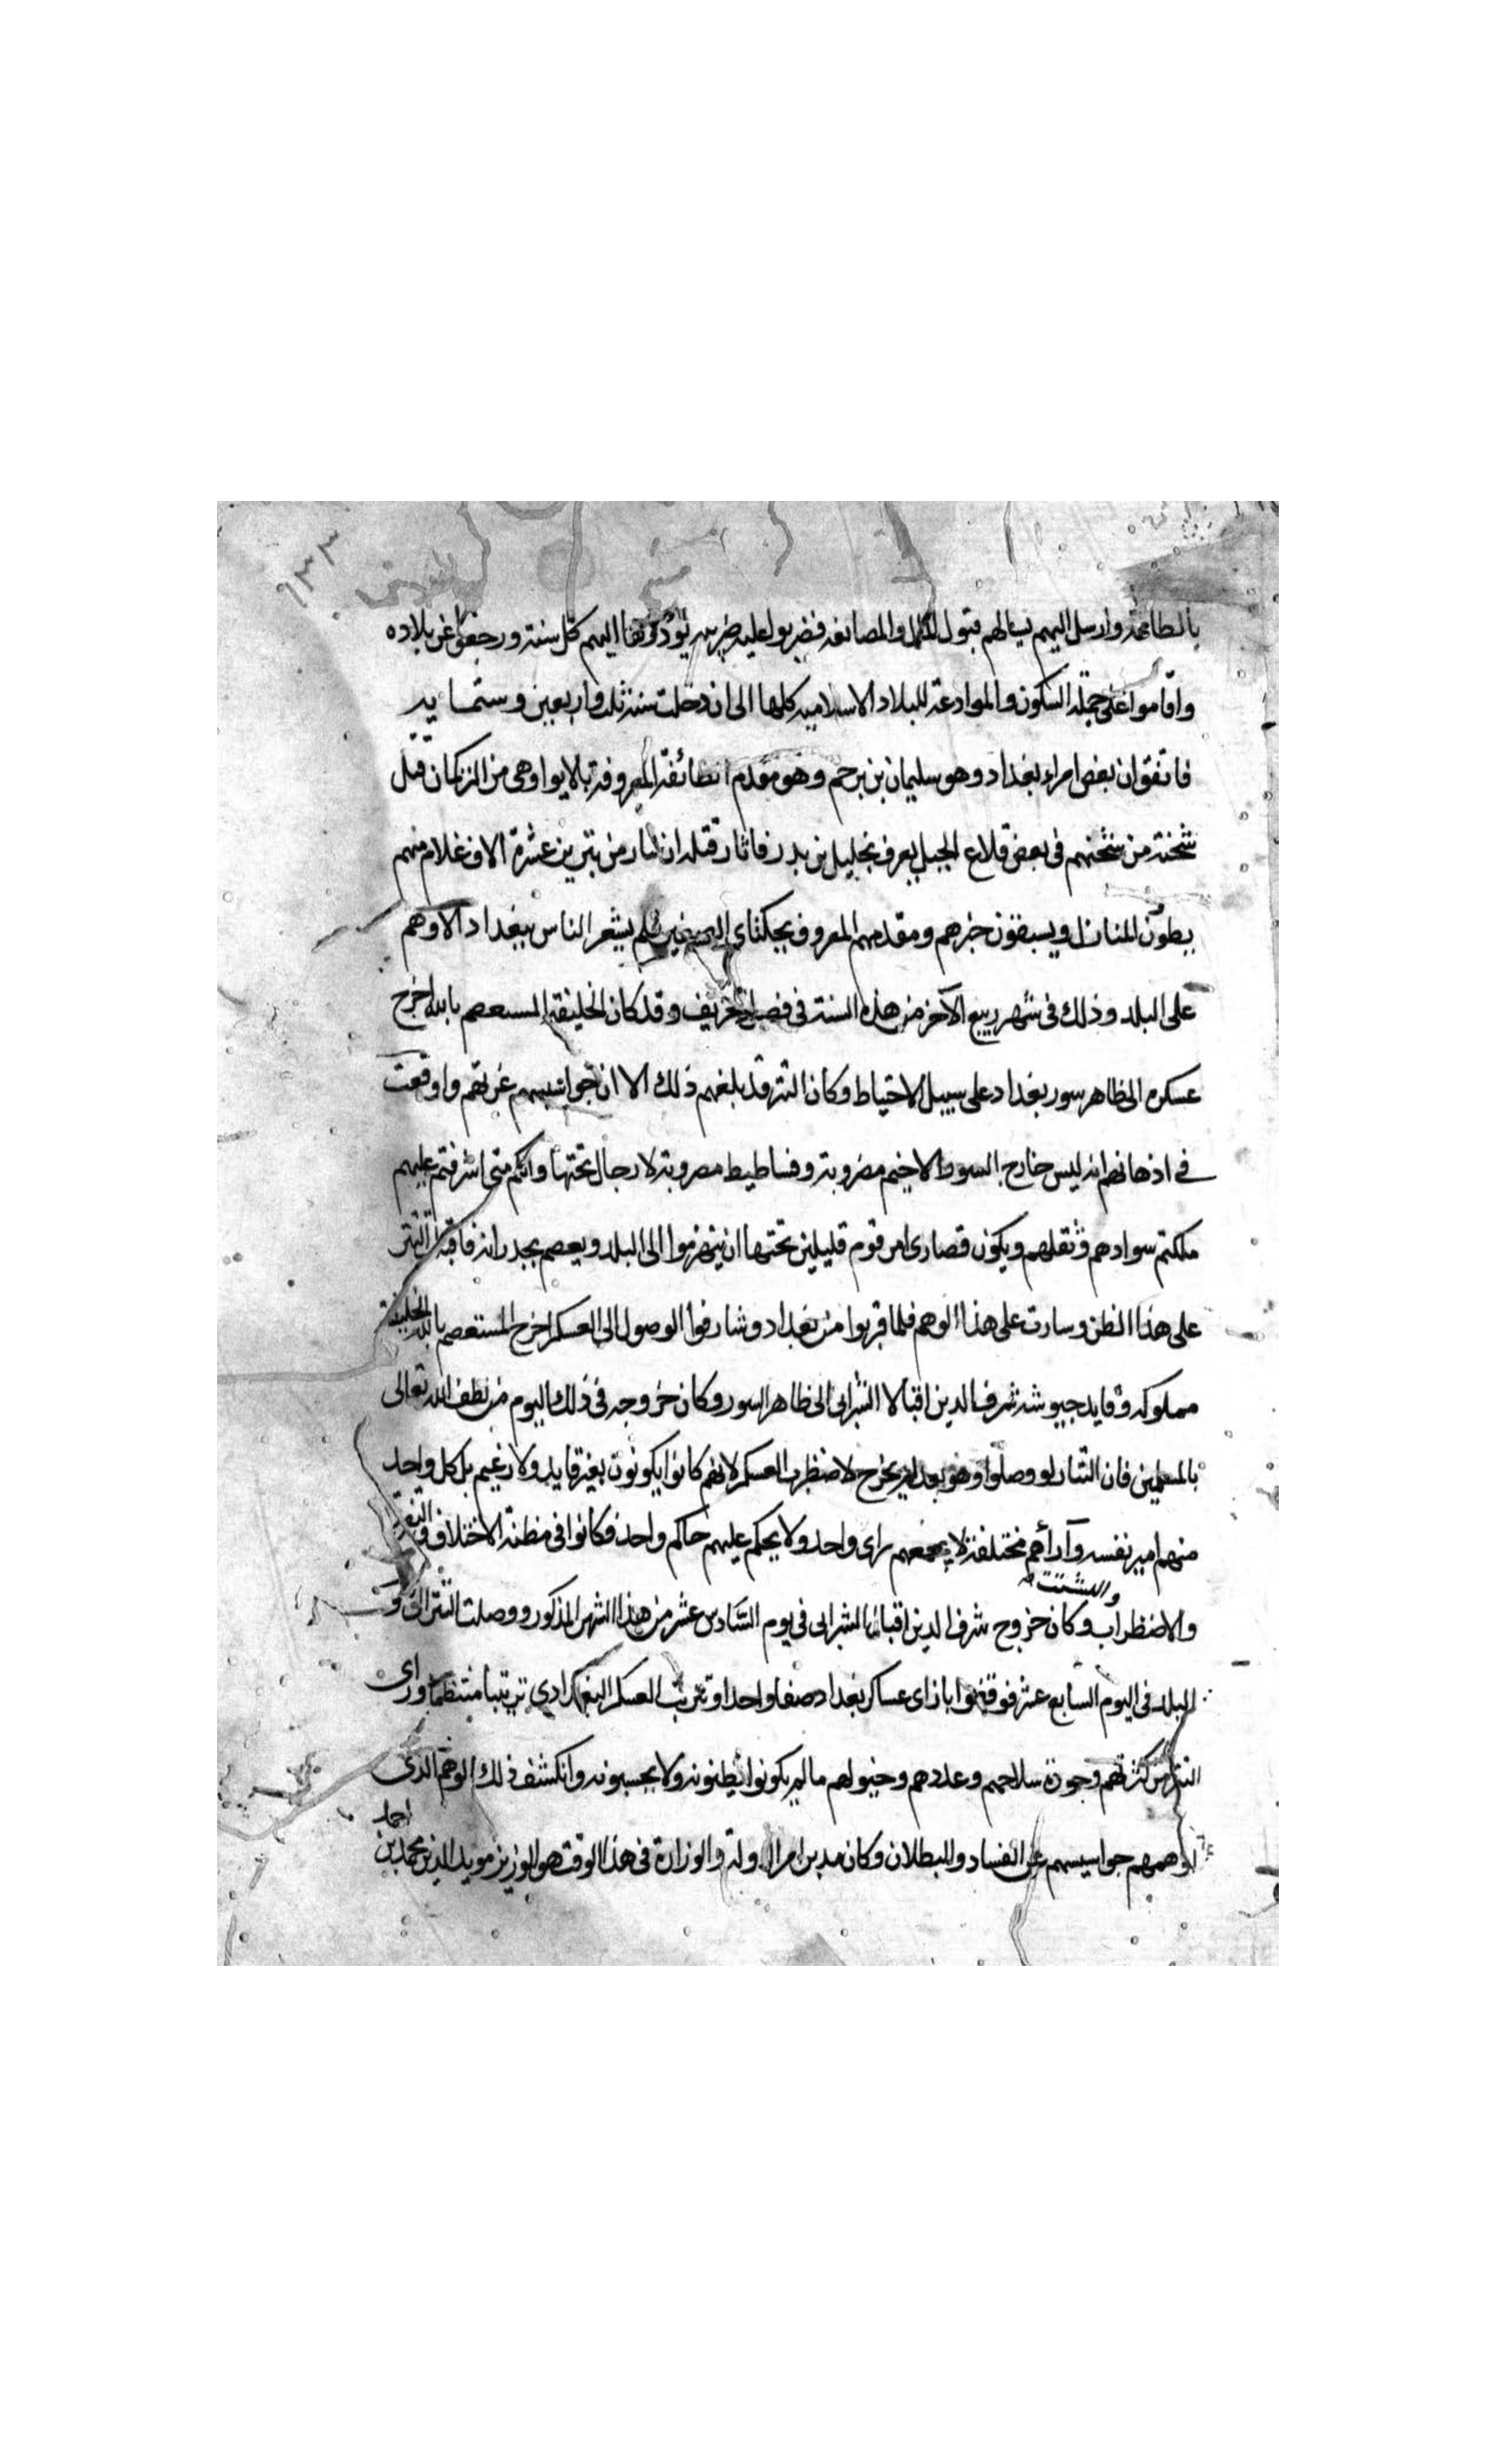 بالطاعة وارسل اليهم يسالهم قبول المال والمصانعة فضربوا عليه ضريبة يؤديها اليهم كل سنة ورجعوا عن بلاده
واقاموا على جملة السكون والموادعة للبلاد الاسلامية كلها الى ان دخلت سنة ثلث واربعين وستماية
فاتفق ان بعض امراء بغداد وهو سليمان بن برجم وهو مقدم الطائفة المعروفة بالايوا وهى من التركمان قتل
شحنة من شحنهم فى بعض قلاع الجبل يعرف بخليل بن بدر فاثار قتله ان سار من تبريز عشرة الاف غلام منهم
يطوون المنازل ويسبقون خبرهم ومقدمهم المعروف بجكتاى الصغير فلم يشعر الناس ببغداد الا وهم
على البلد وذلك فى شهر ربيع الآخر من هذه السنة فى فصل الخريف وقد كان الخليفة المستعصم بالله اخرج
عسكره الى ظاهر سور بغداد على سبيل الاحتياط وكان التتر قد بلغهم ذلك الا ان جواسيسهم غرتهم واوقعت
فى اذهانهم انه ليس خارج السور الا خيم مضروبة وفساطيط مضروبة لا رجال تحتها وانكم متى اشرفتم عليهم
ملكتم سوادهم وثقلهم ويكون قصارى امر قوم قليلين تحتها ان ينهزموا الى البلد ويعصم بجدرانه فاقبلت التتر
على هذا الظن وسارت على هذا الوهم فلما قربوا من بغداد وشارفوا الوصول الى العسكر اخرج المستعصم بالله الخليفة
مملوكه وقايد جيوشه شرف الدين اقبالا الشرابى الى ظاهر السور وكان خروجه فى ذلك اليوم من لطف الله تعالى
بالمسلمين فان التتار لو وصلوا وهو بعد لم يخرج لاضطرب العسكر لانهم كانوا يكونون بغير قايد ولا زعيم بل كل واحد
منهم امير نفسه وآراؤهم مختلفة لا يجمعهم راى واحد ولا يحكم عليهم حاكم واحد فكانوا فى مظنة الاختلاف والتفرق
والتشتت
والاضطراب وكان خروج شرف الدين اقبال الشرابى فى يوم السادس عشر من هذا الشهر المذكور ووصلت التتر الى سور
البلد فى اليوم السابع عشر فوقفوا بازاى عساكر بغداد صفا واحدا وترتب العسكر البغدادى ترتيبا منتظما وراى
التتر من كثرتهم وجودة سلاحهم وعددهم وخيولهم ما لم يكونوا يظنونه ولا يحسبونه وانكشف ذلك الوهم الذى
اوهمهم جواسيسهم عن الفساد والبطلان وكان مدبر امر الدولة والوزارة فى هذا الوقت هو الوزير مويد الدين محمد بن
احمد